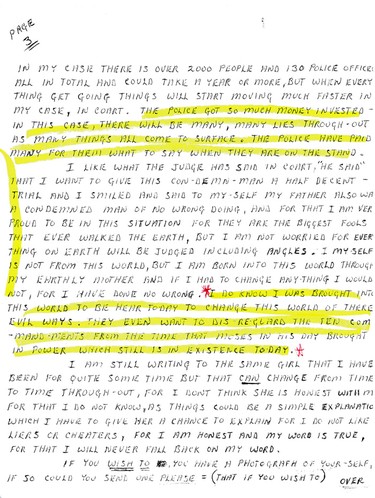 PAGE
3
IN MY CASE THERE IS OVER 2000 PEOPLE AND 130 POLICE OFFICE
ALL IN TOTAL AND COULD TAKE A YEAR OR MORE, BUT WHEN EVERY
THING GET GOING THINGS WILL START MOVING MUCH FASTER IN
MY CASE, IN COURT. THE POLICE GOT SO MUCH MONEY INVESTED-
IN THIS CASE, THERE WILL BE MANY, MANY LIES THROUGH-OUT
AS MANY THINGS ALL COME TO SURFACE. THE POLICE HAVE PAID
MANY FOR THEM WHAT TO SAY WHEN THEY ARE ON THE STAND.
I LIKE WHAT THE JUDGE HAS SAID IN COURT, "HE SAID"
THAT I WANT TO GIVE THIS CON-DEMN-MAN A HALF DECENT-
TRIAL AND I SMILED AND SAID TO MY-SELF MY FATHER ALSO WA
A CONDEMNED MAN OF NO WRONG DOING, AND FOR THAT I AM VER
PROUD TO BE IN THIS SITUATION FOR THEY ARE THE BIGGEST FOOLS
THAT EVER WALKED THE EARTH, BUT I AM NOT WORRIED FOR EVER
THING ON EARTH WILL BE JUDGED INCLUDING ANGLES. I MY SELF
IS NOT FROM THIS WORLD, BUT I AM BORN INTO THIS WORLD THROUGH
MY EARTHLY MOTHER AND IF I HAD TO CHANGE ANY-THING I WOULD
NOT, FOR I HAVE DONE NO WRONG. * I DO KNOW I WAS BROUGHT INTO
THIS WORLD TO BE HEAR TODAY TO CHANGE THIS WORLD OF THERE
EVIL WAYS. THEY EVEN WANT TO DIS-REGUARD THE TEN COM
MAND-MENTS FROM THE TIME THAT MOSES IN HIS DAY BROUGHT
IN POWER WHICH STILL IS IN EXISTENCE TODAY. *
I AM STILL WRITING TO THE SAME GIRL THAT I HAVE
BEEN FOR QUITE SOME TIME BUT THAT CAN CHANGE FROM TIME
TO TIME THROUGH-OUT, FOR I DONT THINK SHE IS HONEST WITH M
FOR THAT I DO NOT KNOW, AS THINGS COULD BE A SIMPLE EXPLANATIO
WHICH I HAVE TO GIVE HER A CHANCE TO EXPLAIN FOR I DO NOT LIKE
LIERS OR CHEATERS, FOR I AM HONEST AND MY WORD IS TRUE,
FOR THAT I WILL NEVER FALL BACK ON MY WORD.
IF YOU WISH TO, YOU HAVE A PHOTOGRAPH OF YOUR-SELF,
IF SO COULD YOU SEND ONE PLEASE = (THAT IF YOU WISH TO)
OVER